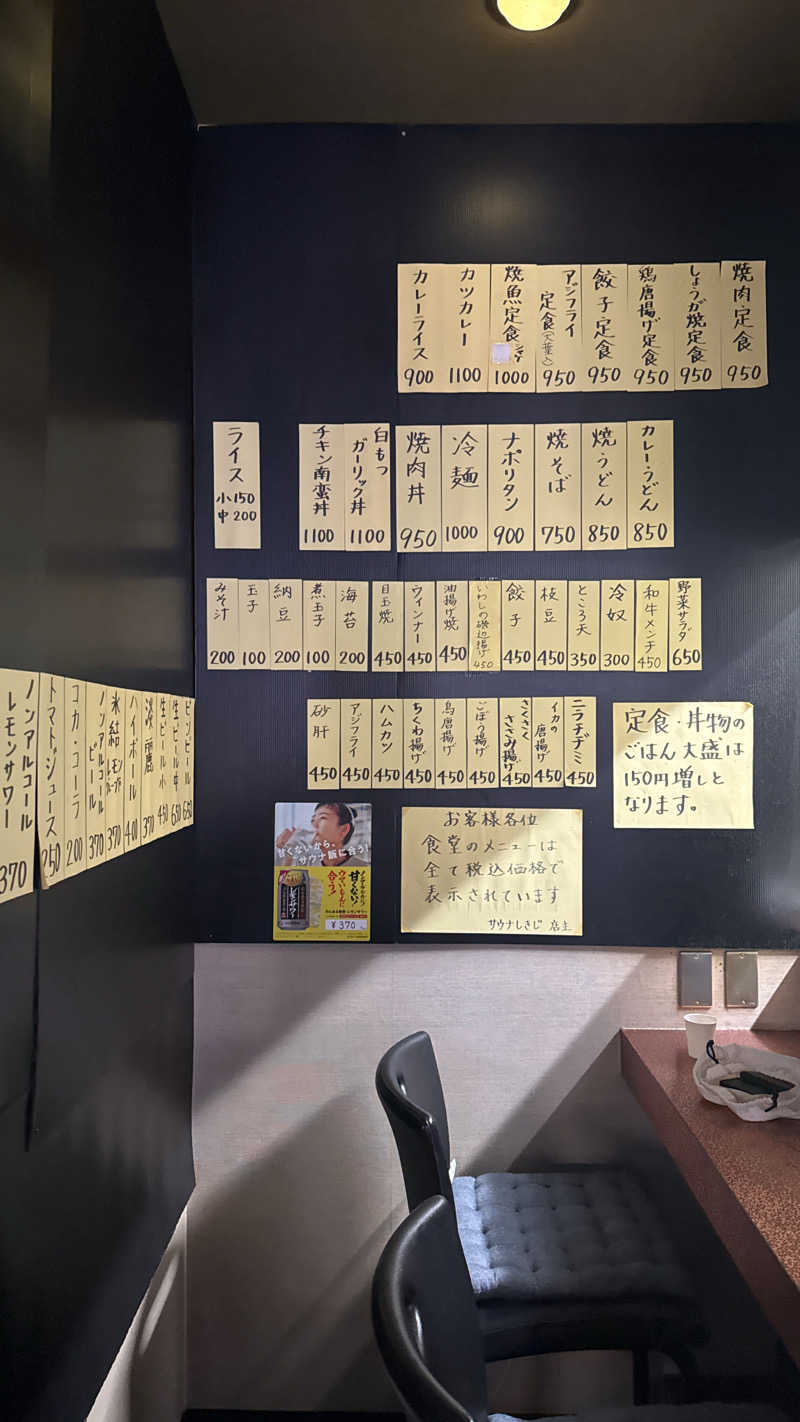 焼肉定食 950
しょうが焼定食 950
鶏唐揚げ定食 950
餃子定食 950
アジフライ定食(大葉入) 950
焼魚定食 シャケ 1000
カツカレー 1100
カレーライス 900
カレーうどん 850
焼うどん 850
焼そば 750
ナポリタン 900
冷麺 1000
焼肉丼 950
白もつガーリック丼 1100
チキン南蛮丼 1100
ライス 小150 中200
野菜サラダ 650
和牛メンチ 450
冷奴 300
ところ天 350
枝豆 450
餃子 450
いわしの磯辺揚げ 450
油揚げ焼 450
ウィンナー 450
目玉焼 450
海苔 200
煮玉子 100
納豆 200
玉子 100
みそ汁 200
ニラチヂミ 450
イカの唐揚げ 450
さくさくささみ揚げ 450
ごぼう揚げ 450
鳥唐揚げ 450
ちくわ揚げ 450
ハムカツ 450
アジフライ 450
砂肝 450
定食・丼物の
ごはん大盛は
150円増しと
なります。
お客様各位
食堂のメニューは
全て税込価格で
表示されています
サウナしきじ 店主
甘くないから、
サウナ飯に合う!
甘くない!
レモンサワー
¥370
ビンビール 650
生ビール中 650
生ビール小 450
淡麗 370
ハイボール 400
氷結 レモン 370
ノンアルコールビール 370
コカ・コーラ 200
トマトジュース 250
ノンアルコールレモンサワー 370